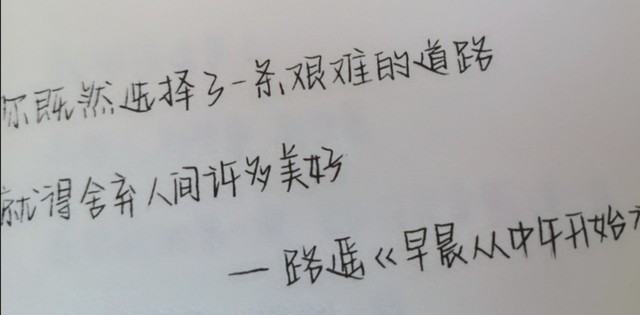 你既然选择了一条艰难的道路
就得舍弃人间许多美好
—路遥《早晨从中午开始